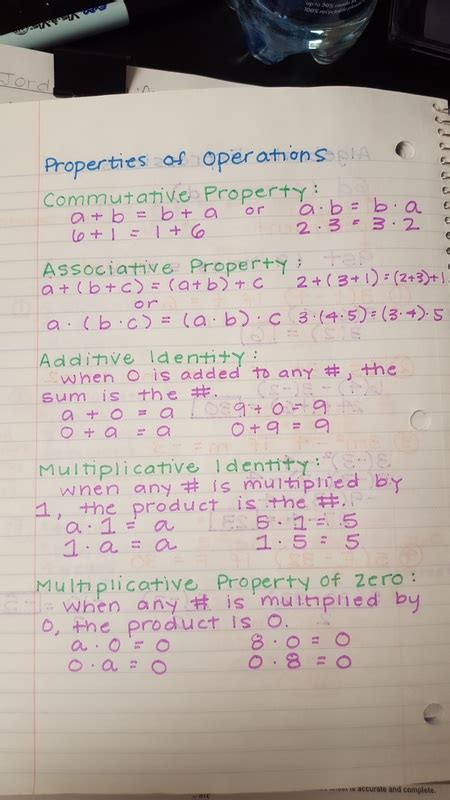 Jord
Properties of Operations
Commutative Property:
a + b = b + a or a · b = b · a
6 + 1 = 1 + 6 2 · 3 = 3 · 2
Associative Property:
a + (b + c) = (a + b) + c 2 + (3 + 1) = (2 + 3) + 1
or
a · (b · c) = (a · b) · c 3 · (4 · 5) = (3 · 4) · 5
Additive Identity:
when 0 is added to any #, the
sum is the #.
a + 0 = a 9 + 0 = 9
0 + a = a 0 + 9 = 9
Multiplicative Identity:
when any # is multiplied by
1, the product is the #.
a · 1 = a 5 · 1 = 5
1 · a = a 1 · 5 = 5
Multiplicative Property of Zero:
when any # is multiplied by
0, the product is 0.
a · 0 = 0 8 · 0 = 0
0 · a = 0 0 · 8 = 0
is accurate and complete.